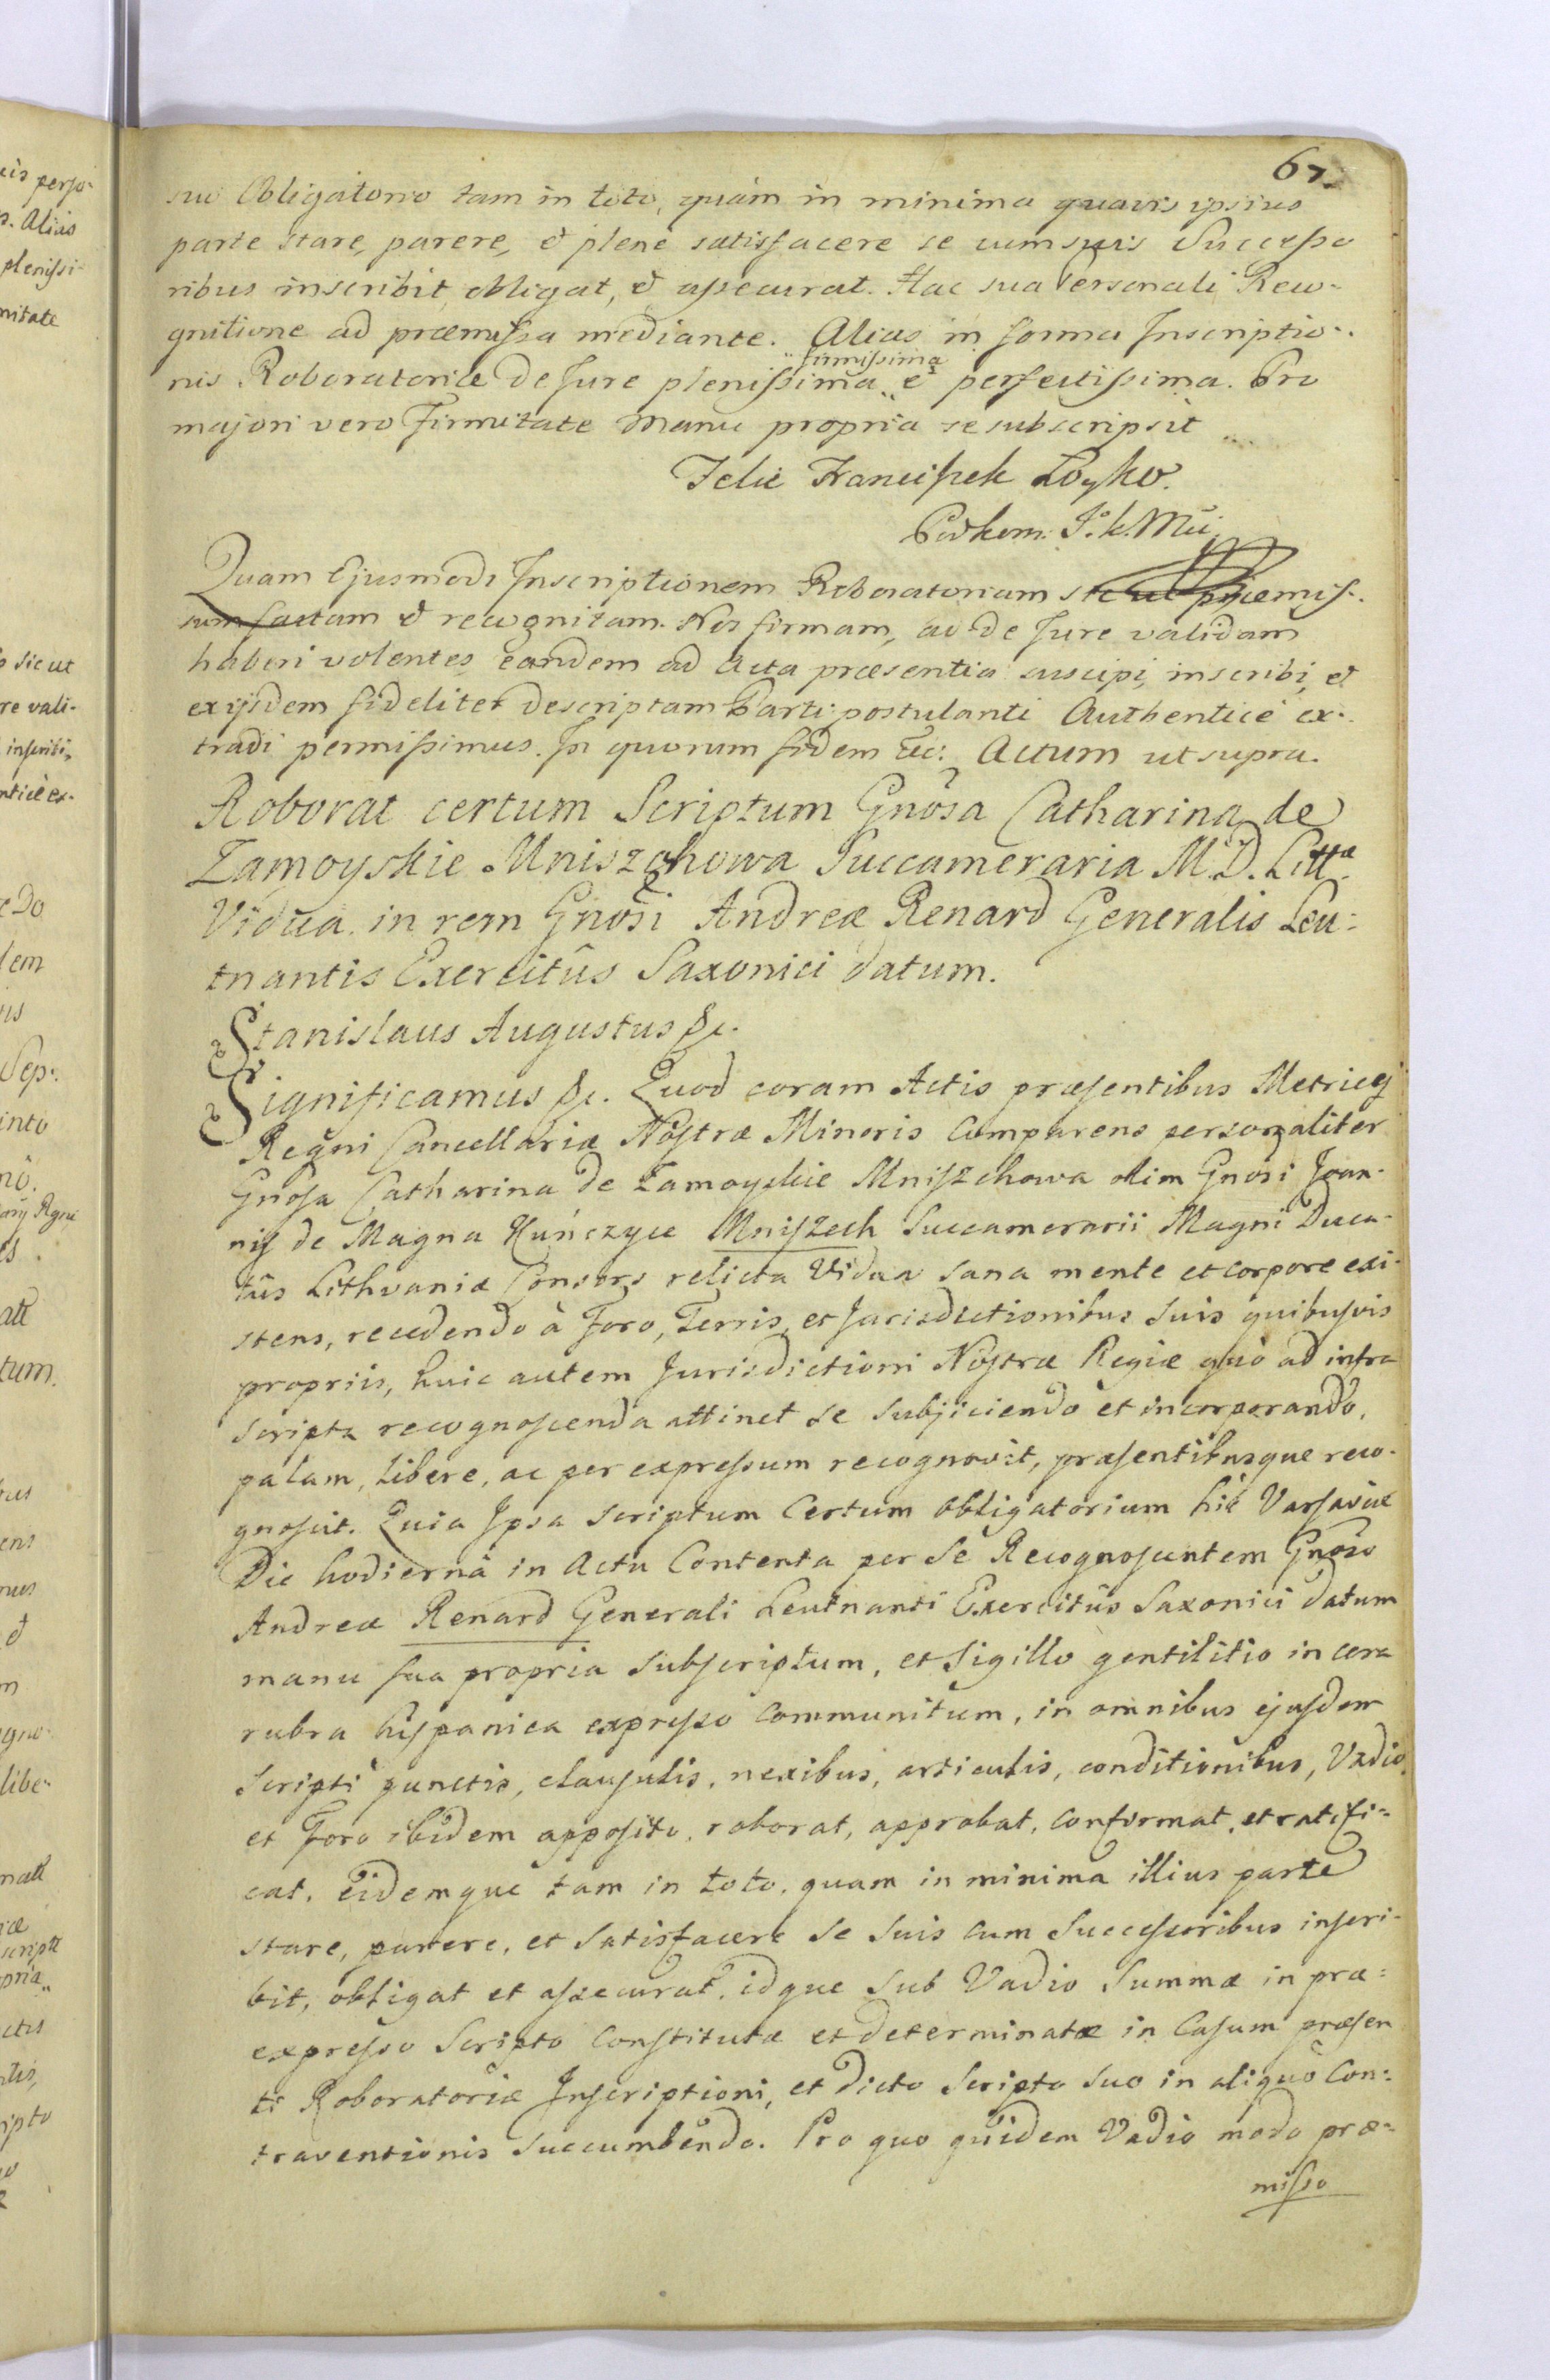 67.
suo Obligatorio tam in toto, quàm in minima quavis ipsius
parte stare, parere, & plenè satisfacere se cum suis Successo
ribus inscribit, obligat, & assecurat. Hac sua Personali Reco-
gnitione ad præmissa mediante. Alias in forma Inscriptio-
firmissima
nis Roboratoriæ de Jure plenissima & perfectissima. Pro
majori vero Firmitate Manu propria se subscripsit
Felic Franciszek Łoyko
Podkom. J. k. Mci
Quam Ejusmodi Inscriptionem Roboratoriam sic ut præmis-
sum factam & recognitam. Nos firmam, ac de Jure validam
haberi volentes, eandem ad Acta præsentia suscipi, inscribi, &
ex ijsdem fideliter descriptam Parti postulanti Authenticè ex-
tradi permissimus. In quorum fidem &c: Actum ut supra.
Roborat certum Scriptum Gnosa Catharina de
Zamoyskie Mniszchowa Succameraria M.D. Litt.æ
Vidua in rem Gnosi Andreæ Renard Generalis Leu-
tnantis Exercitûs Saxonici datum.
Stanislaus Augustus &c.
Significamus &c. Quod coram Actis præsentibus Metricej
Regni Cancellariæ Nostræ Minoris Comparens personaliter
Gnosa Catharina de Zamoyskie Mniszchowa olim Gnosi Joan-
nis de Magna Kunczyce Mniszech Succamerarii Magni Duca-
tûs Lithvaniæ Consors relicta Vidua sana mente et corpore exi-
stens, recedendo à Foro, Terris, et Jurisdictionibus suis quibusvis
propriis, huic autem Jurisdictioni Nostræ Regiæ quò ad infra
scripta recognoscenda attinet se subjiciendo et incorporando,
palam, libere, ac per expressum recognovit, præsentibusque reco-
gnoscit. Quia Ipsa Scriptum Certum Obligatorium hic Varsaviæ
Die hodiernâ in Actu Contenta per Se Recognoscentem Gnoso
Andreæ Renard Generali Leutnanti Exercitûs Saxonici datum
manu sua propria subscriptum, et Sigillo gentilitio in cera
rubra hispanica expresso communitum, in omnibus ejusdem
Scripti punctis, clausulis, nexibus, articulis, conditionibus, Vadio,
et Foro ibidem apposito, roborat, approbat, confirmat, et ratifi-
cat. Eidemque tam in toto, quam in minima illius parte
stare, parere, et satisfacere se suis cum Successoribus inscri-
bit, obligat et assecurat, idque sub Vadio Summæ in præ-
expresso Scripto Constitutæ et determinatæ in Casum præsen
ti Roboratoriæ Inscriptioni, et dicto Scripto suo in aliquò Con-
traventionis succumbendo. Pro quo quidem Vadio modo præ-
misso